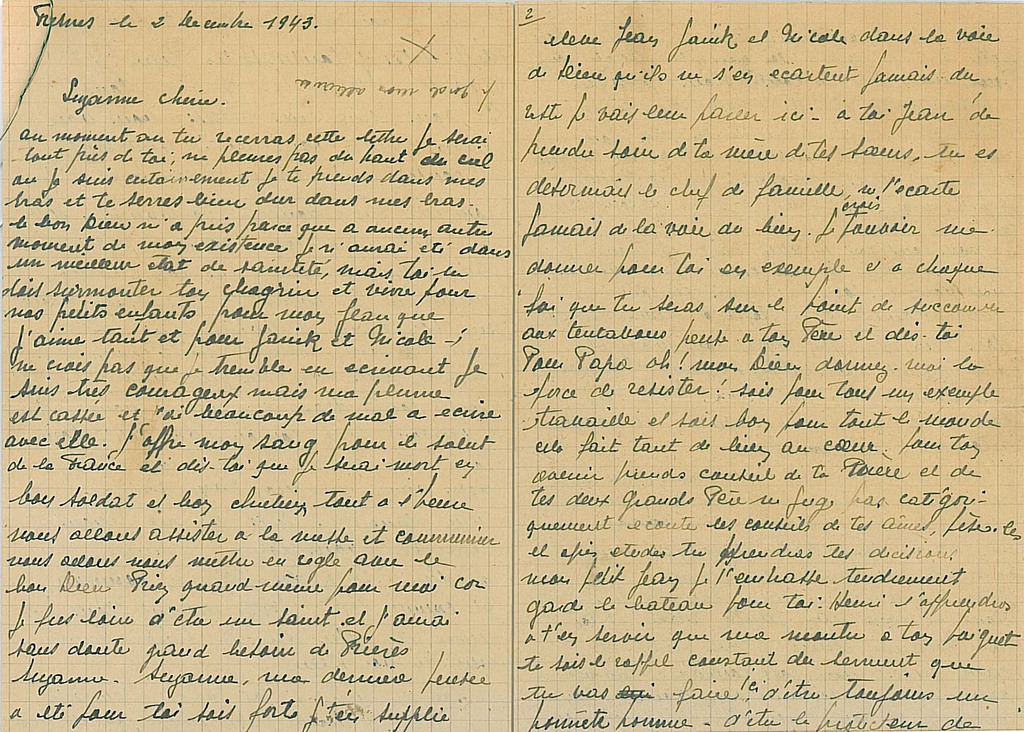 Fresnes le 2 Decembre 1943.
je garde mon alliance
Suzanne cherie.
au moment ou tu recevras cette lettre je serai
tout près de toi, ne pleures pas du haut du ciel
ou je suis certainement je te prends dans mes
bras et te serres bien dur dans mes bras.
le bon Dieu m'a pris parce que a aucun autre
moment de mon existence je n'aurai eté dans
un meilleur etat de sainteté, mais toi tu
dois surmonter ton chagrin et vivre pour
nos petits enfants pour mon Jean que
j'aime tant et pour Janik et Nicole -
ne crois pas que je tremble en ecrivant je
suis très courageux mais ma plume
est cassée et j'ai beaucoup de mal a ecrire
avec elle. J'offre mon sang pour le salut
de la France et dis toi que je serai mort en
bon soldat et bon chretien tout a l'heure
nous allons assister a la messe et communier
nous allons nous mettre en regle avec le
bon Dieu Prie quand même pour moi car
je fus loin d'être un saint et j'aurai
sans doute grand besoin de Prières
Suzanne. Suzanne, ma dernière pensée
a été pour toi sois forte je t'en supplie
2
eleve Jean Janik et Nicole dans la voie
de Dieu qu'ils ne s'en ecartent jamais du
reste je vais leur parler ici - a toi Jean de
prendre soin de ta mère de tes sœurs, tu es
désormais le chef de famille, ne t'ecarte
jamais de la voie du bien. Je crois pouvoir me
donner pour toi en exemple et a chaque
foi que tu seras sur le point de succomber
aux tentations pense a ton Père et dis-toi
Pour Papa oh! mon Dieu donnez-moi la
force de resister! sois pour tous un exemple
travaille et sois bon pour tout le monde
cela fait tant de bien au cœur. pour ton
avenir prends conseil de ta Mère et de
tes deux Grands Père ne juge pas catégori-
quement ecoute les conseils de tes aînés, pèse-les
et après etudes tu prendras tes decisions
mon petit Jean je t'embrasse tendrement
garde le bateau pour toi. Henri t'apprendras
a t'en servir que ma montre a ton poignet
te sois le rappel constant du serment que
tu vas faire ici d'être toujours un
honnête homme - d'être le protecteur de